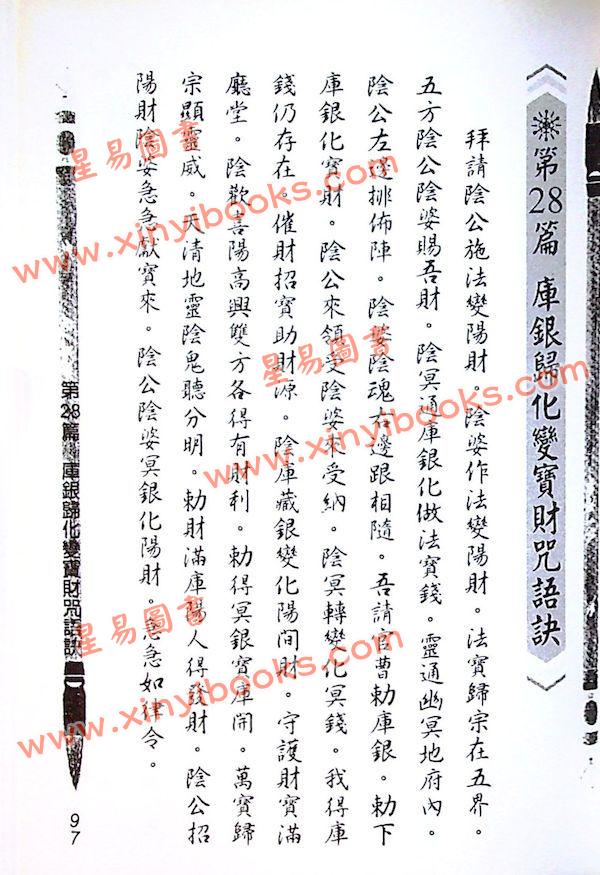 第28篇 庫銀歸化變寶財咒語訣
拜請陰公施法變陽財。陰婆作法變陽財。法寶歸宗在五界。
五方陰公陰婆賜吾財。陰冥通庫銀化做法寶錢。靈通幽冥地府內。
陰公左邊排佈陣。陰婆陰魂右邊跟相隨。吾請官曹勅庫銀。勅下
庫銀化寶財。陰公來領受陰婆來受納。陰冥轉變化冥錢。我得庫
錢仍存在。催財招寶助財源。陰庫藏銀變化陽間財。守護財寶滿
廳堂。陰歡喜陽高興雙方各得有財利。勅得冥銀寶庫開。萬寶歸
宗顯靈威。天清地靈陰鬼聽分明。勅財滿庫陽人得發財。陰公招
陽財陰婆急急獻寶來。陰公陰婆冥銀化陽財。急急如律令。
第28篇 庫銀歸化變寶財咒語訣
97
星易圖書
www.xinyibooks.com
星易圖書
www.xinyibooks.com
星易圖書
www.xinyibooks.com